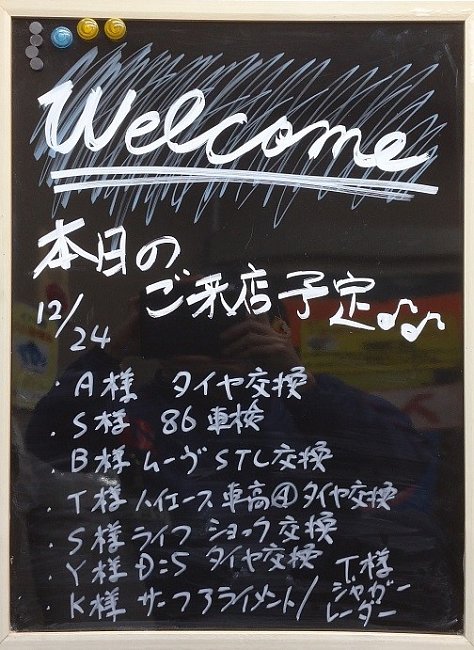 Welcome
本日の
ご来店予定♪♫
12/24
・A様 タイヤ交換
・S様 86車検
・B様 ムーヴ STL交換
・T様 ハイエース 車高④タイヤ交換
・S様 ライフ ショック交換
・Y様 D:5 タイヤ交換
・K様 サーフアライメント/ T様
ジャガー
レーダー